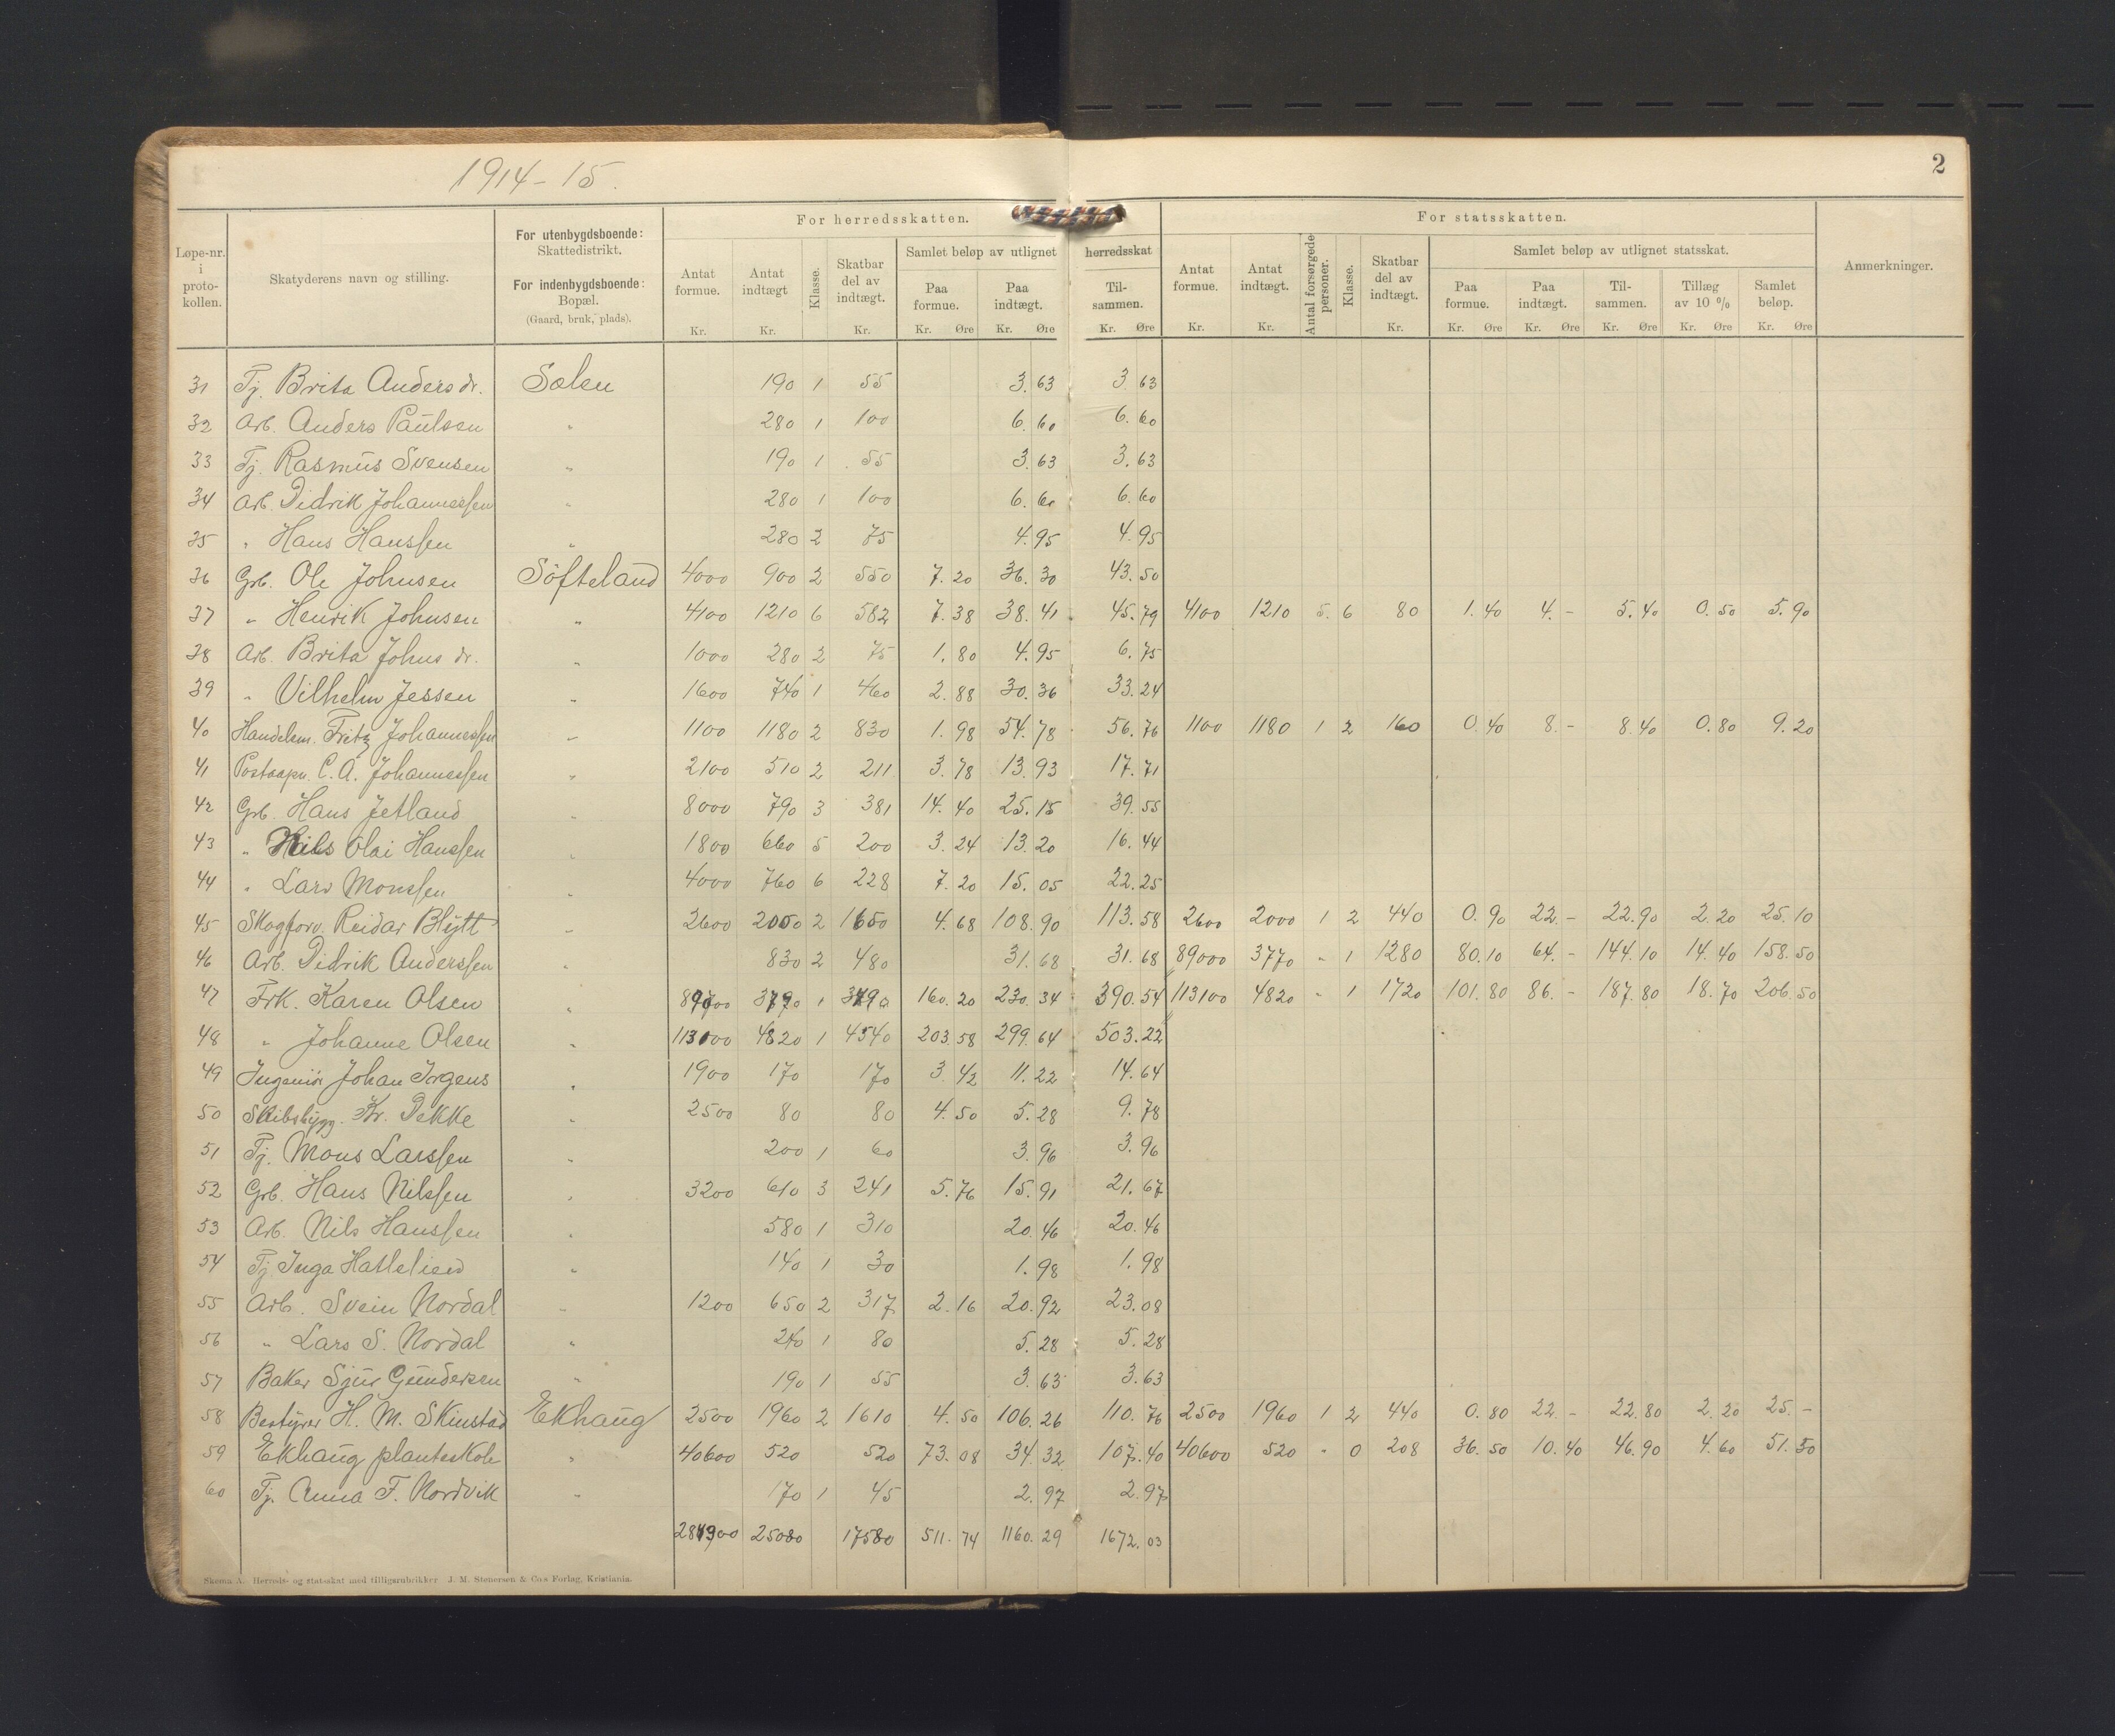 1914-15.
2
Løpe-nr. i proto-kollen.
Skatyderens navn og stilling.
For utenbygdsboende: Skattedistrikt.
For indenbygdsboende: Bopæl. (Gaard, bruk, plads).
For herredsskatten.
Antat formue. Kr.
Antat indtægt Kr.
Klasse.
Skatbar del av indtægt. Kr.
Samlet beløp av utlignet herredsskat
Paa formue. Kr. Øre
Paa indtægt. Kr. Øre
Til-sammen. Kr. Øre
For statsskatten.
Antat formue. Kr.
Antat indtægt. Kr.
Antal forsørgede personer.
Klasse.
Skatbar del av indtægt. Kr.
Samlet beløp av utlignet statsskat.
Paa formue. Kr. Øre
Paa indtægt. Kr. Øre
Til-sammen. Kr. Øre
Tillæg av 10 % Kr. Øre
Samlet beløp. Kr. Øre
Anmerkninger.
31 Tj. Brita Anders dr. Solen 190 1 55 3.63 3.63
32 Arb. Anders Paulsen " 280 1 100 6.60 6.60
33 Tj. Rasmus Svensen " 190 1 55 3.63 3.63
34 Arb. Didrik Johannessen " 280 1 100 6.60 6.60
35 " Hans Hanssen " 280 2 75 4.95 4.95
36 Grb. Ole Johnsen Söfteland 4000 900 2 550 7.20 36.30 43.50
37 " Henrik Johnsen " 4100 1210 6 582 7.38 38.41 45.79 4100 1210 5. 6 80 1.40 4.- 5.40 0.50 5.90
38 Arb. Brita Johns dr. " 1000 280 2 75 1.80 4.95 6.75
39 " Vilhelm Jessen " 1600 740 1 460 2.88 30.36 33.24
40 Handelsm. Fritz Johannessen " 1100 1180 2 830 1.98 54.78 56.76 1100 1180 1 2 160 0.40 8.- 8.40 0.80 9.20
41 Postaapn. C. A. Johannessen " 2100 510 2 211 3.78 13.93 17.71
42 Grb. Hans Jetland " 8000 790 3 381 14.40 25.15 39.55
43 " Nils Olai Hanssen " 1800 660 5 200 3.24 13.20 16.44
44 " Lars Monssen " 4000 760 6 228 7.20 15.05 22.25
45 Skogforv. Reidar Blytt " 2600 2000 2 1650 4.68 108.90 113.58 2600 2000 1 2 440 0.90 22.- 22.90 2.20 25.10
46 Arb. Didrik Anderssen " 830 2 480 31.68 31.68 89000 3770 " 1 1280 80.10 64.- 144.10 14.40 158.50
47 Frk. Karen Olsen " 89000 3770 1 3490 160.20 230.34 390.54 113100 4820 " 1 1720 101.80 86.- 187.80 18.70 206.50
48 " Johanne Olsen " 113100 4820 1 4540 203.58 299.64 503.22
49 Ingeniör Johan Irgens " 1900 170 170 3.42 11.22 14.64
50 Skibsbygg. Kr. Dekke " 2500 80 80 4.50 5.28 9.78
51 Tj. Mons Larssen " 200 1 60 3.96 3.96
52 Grb. Hans Nilssen " 3200 610 3 241 5.76 15.91 21.67
53 Arb. Nils Hanssen " 580 1 310 20.46 20.46
54 Tj. Inga Hatlelied " 140 1 30 1.98 1.98
55 Arb. Svein Nordal " 1200 650 2 317 2.16 20.92 23.08
56 " Lars S. Nordal " 240 1 80 5.28 5.28
57 Baker Sjur Gundersen " 190 1 55 3.63 3.63
58 Bestyrer H. M. Skinstad Ekhaug 2500 1960 2 1610 4.50 106.26 110.76 2500 1960 1 2 440 0.80 22.- 22.80 2.20 25.-
59 Ekhaug planteskole " 40600 520 520 73.08 34.32 107.40 40600 520 " 0 208 36.50 10.40 46.90 4.60 51.50
60 Tj. Anna F. Nordvik " 170 1 45 2.97 2.97
25080 17580 511.74 1160.29 1672.03
Skema A. Herreds- og statsskat med tilligsrubrikker J. M. Stenersen & Co.s Forlag, Kristiania.